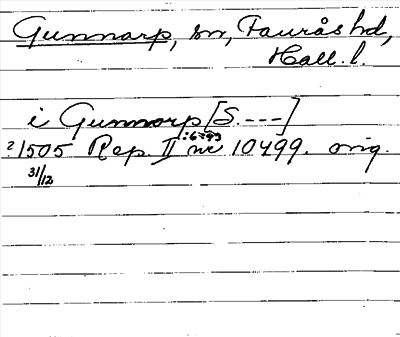 Gunnarp, sn, Faurås hd,
Hall. l.
i Gunnorp [S. ---]
?1505 Rep. II nr 10499. orig.
31/12